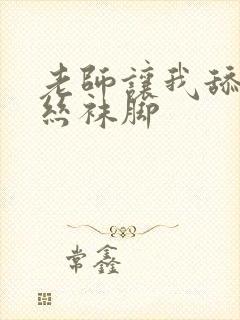 老師讓我舔
絲襪脚
常鑫